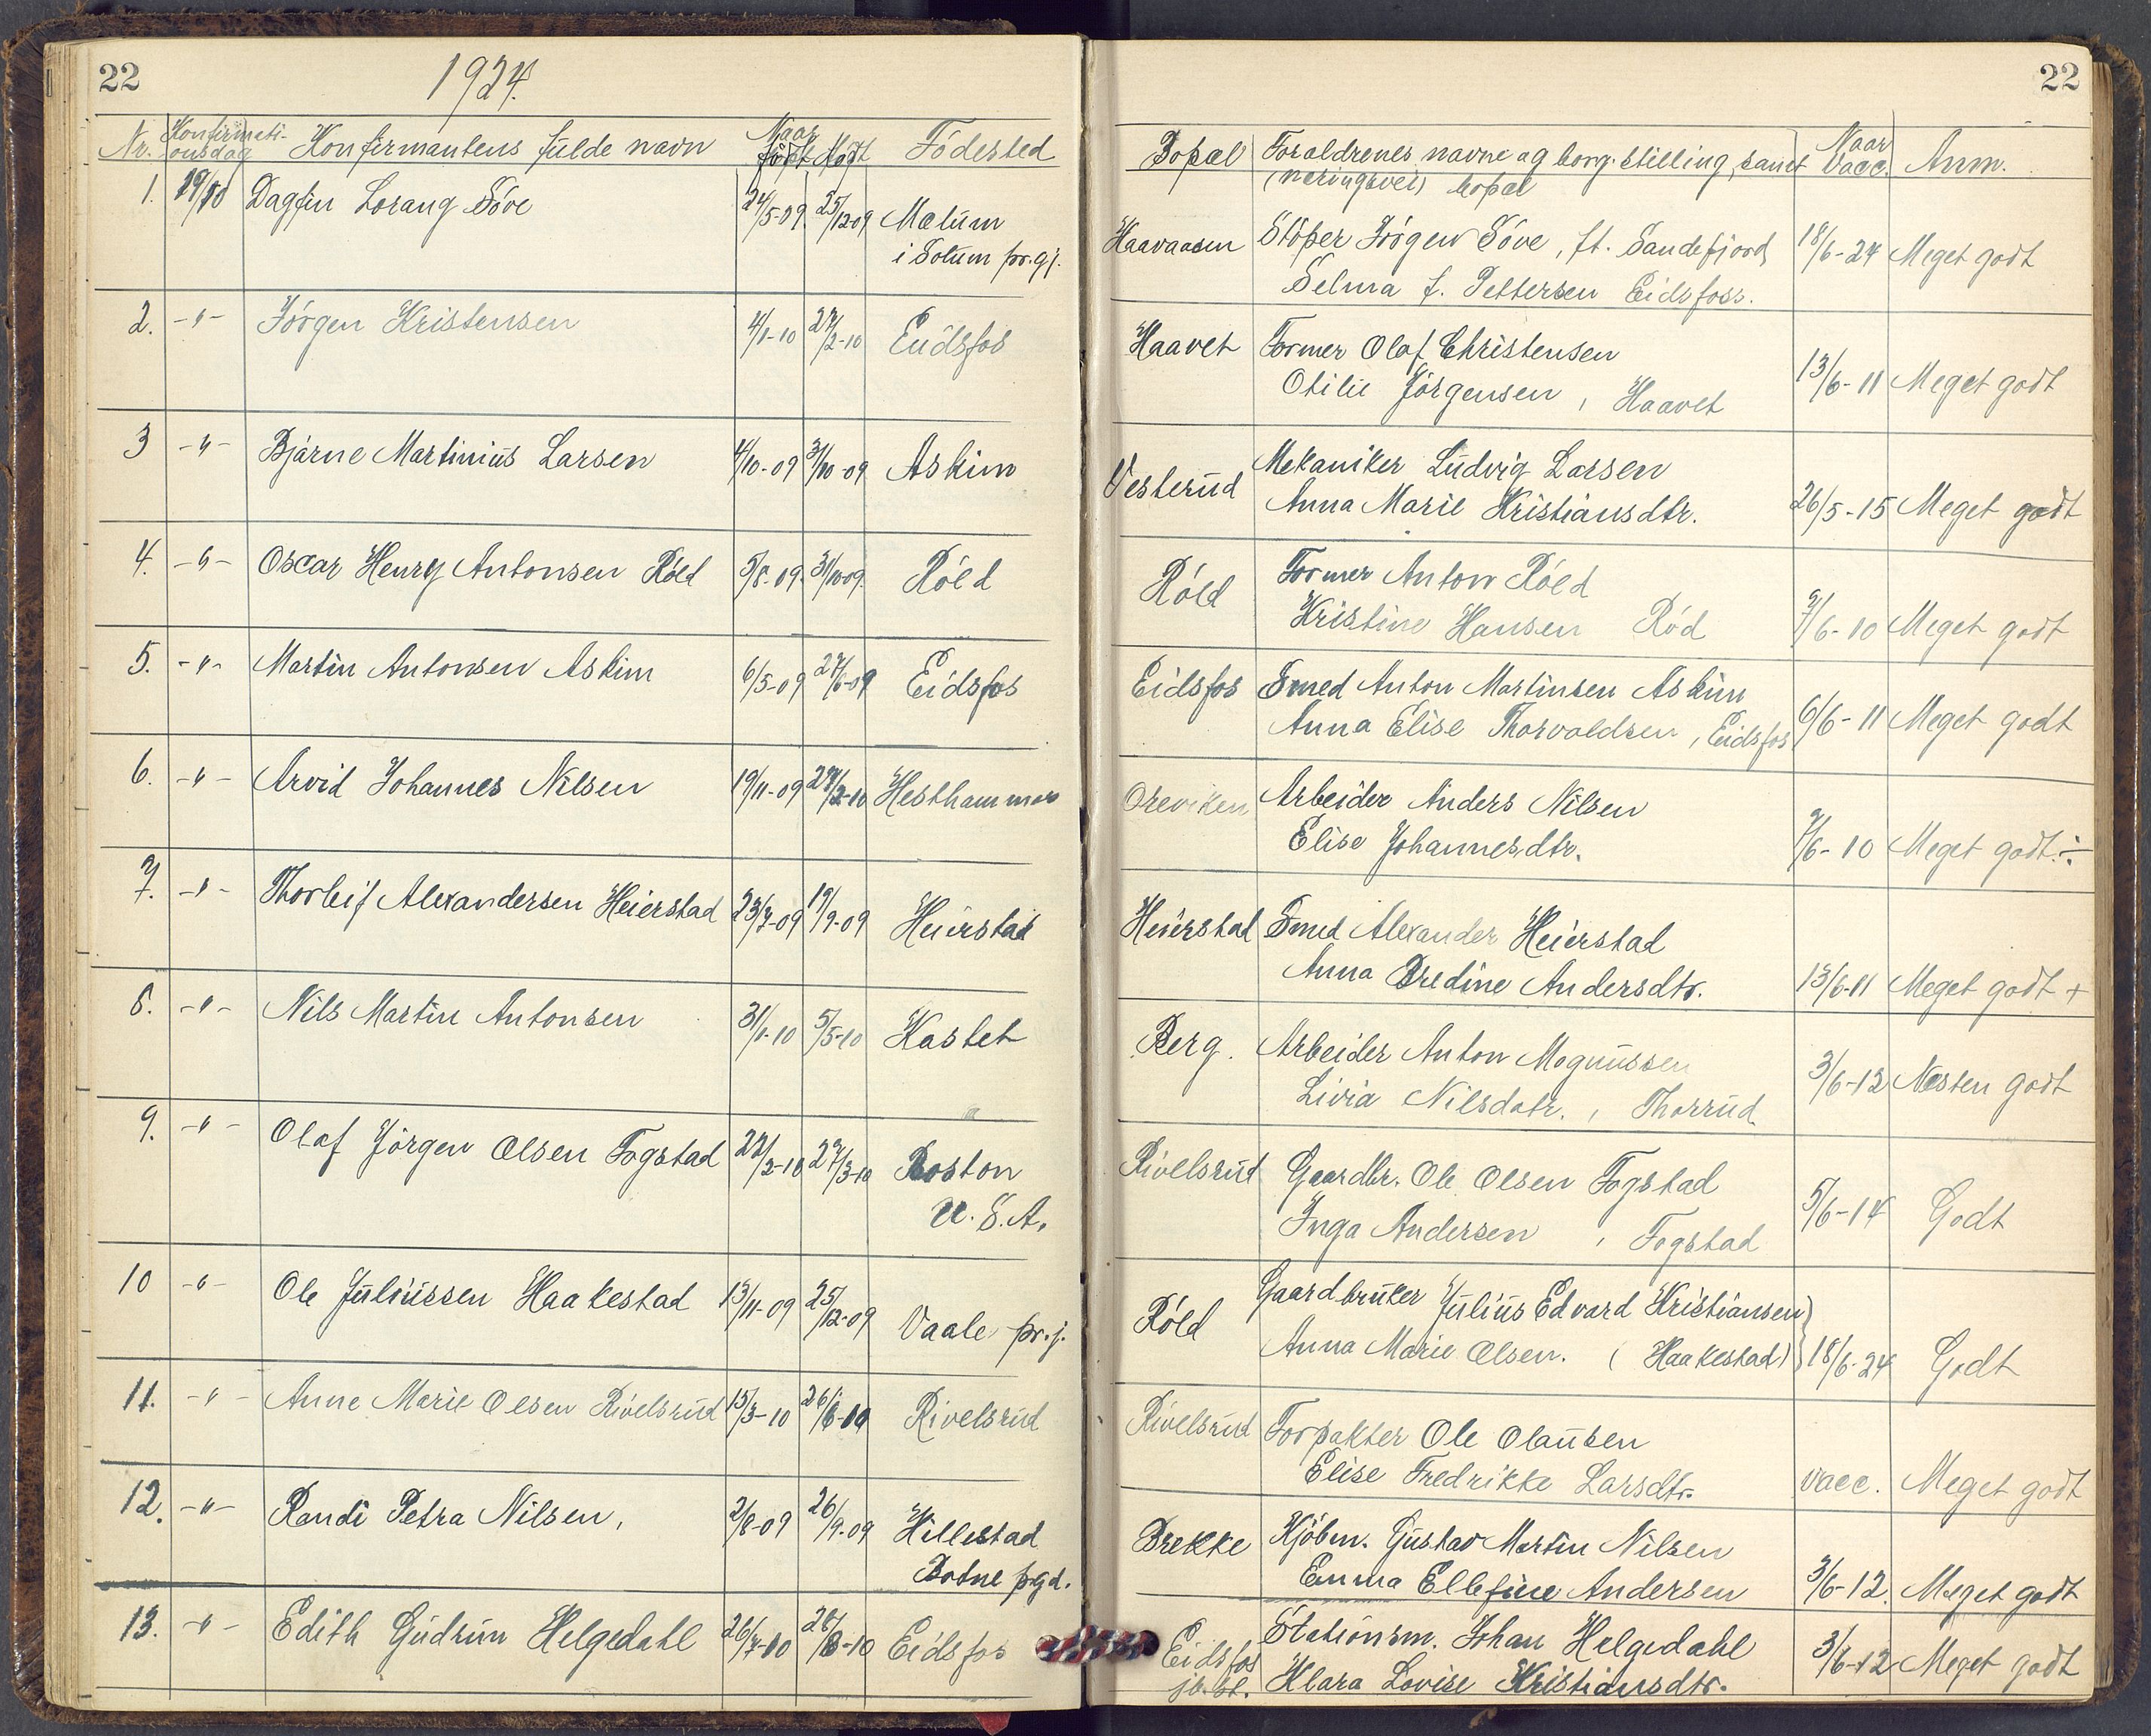 22
1924.
Nr. Konfirmati- onsdag Konfirmantens fulde navn Naar født Døbt Födested
1. 19/10 Dagfin Lorang Söve 24/5-09. 25/12-09 Mælum
i Solum pr.gj.
2. -"- Jörgen Kristensen 4/1-10 27/2-10 Eidsfos
3 -"- Bjarne Martinius Larsen 4/10-09 31/10-09 Askim
4. -"- Oscar Henry Antonsen Röld 5/8-09. 31/10-09. Röld
5. -"- Martin Antonsen Askim 6/5-09 27/6-09 Eidsfos
6. -"- Arvid Johannes Nilsen 19/11-09 27/2-10 Hesthammer
7. -"- Thorleif Alexandersen Heierstad 23/7-09 19/9-09 Heierstad
8. -"- Nils Martin Antonsen 31/1-10 5/5-10 Kastet
9. -"- Olaf Jörgen Olsen Fogstad 22/2-10 27/3-10 Boston
U.S.A.
10 -"- Ole Juliussen Haakestad 13/11-09 25/12-09 Vaale pr.j.
11. -"- Anne Marie Olsen Rivelsrud 15/3-10 26/6-10 Rivelsrud
12. -"- Randi Petra Nilsen, 2/8-09 26/9-09 Hillestad
Botne pgd.
13. -"- Edith Gudrun Helgedahl 26/7-10 28/8-10 Eidsfos
22
Bopæl Foraldrenes navne og borg. stilling, samt Naar vacc. Anm.
(næringsvei) bopæl
Haavaasen Stöper Jörgen Söve, ft. Sandefjord 18/6-24 Meget godt
Selma f. Pettersen Eidsfoss.
Haavet Former Olaf Christensen
Otilie Jörgensen, Haavet 13/6-11 Meget godt
Vesterud Mekaniker Ludvig Larsen
Anna Marie Kristiansdtr. 26/5-15 Meget godt
Röld Former Anton Röld
Kristine Hansen Röd 7/6-10 Meget godt
Eidsfos Smed Anton Martinsen Askim
Anna Elise Thorvaldsen, Eidsfos 6/6-11 Meget godt
Oreviken Arbeider Anders Nilsen
Elise Johannesdtr. 7/6-10 Meget godt.÷
Heierstad Smed Alexander Heierstad
Anna Bredine Andersdtr. 13/6-11 Meget godt +
Berg. Arbeider Anton Magnussen
Livia Nilsdatr., Thorrud 3/6-12 Næsten godt
Rivelsrud Gaardbr. Ole Olsen Fogstad
Inga Andersen, Fogstad 5/6-14 Godt
Röld Gaardbruker Julius Edvard Kristiansen
Anna Marie Olsen. (Haakestad) 18/6-24 Godt
Rivelsrud Forpakter Ole Olausen
Elise Fredrikke Larsdtr. vacc. Meget godt
Brekke Kjöbm. Gustav Martin Nilsen
Emma Ellefine Andersen 3/6-12. Meget godt
Eidsfos Stationsm. Johan Helgedahl 3/6-12 Meget godt
jb.st. Klara Lovise Kristiansdtr.